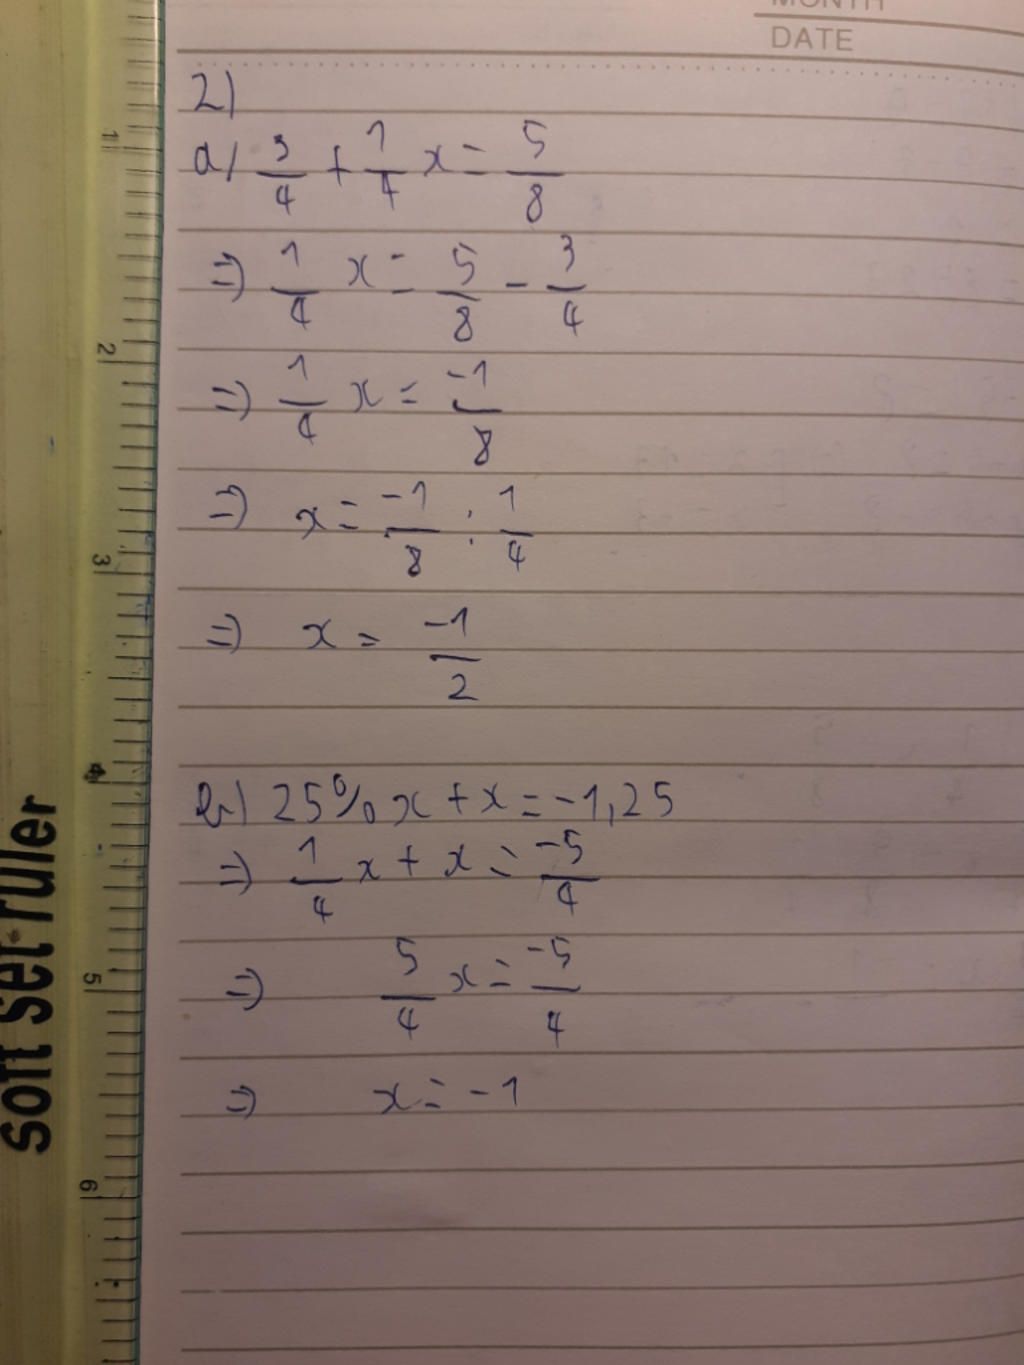 MONTH
DATE
2)
a) 3/4 + 1/4 x = 5/8
=> 1/4 x = 5/8 - 3/4
=> 1/4 x = -1/8
=> x = -1/8 : 1/4
=> x = -1/2
b) 25% x + x = -1,25
=> 1/4 x + x = -5/4
=> 5/4 x = -5/4
=> x = -1
soft set ruler
1
2
3
4
5
6